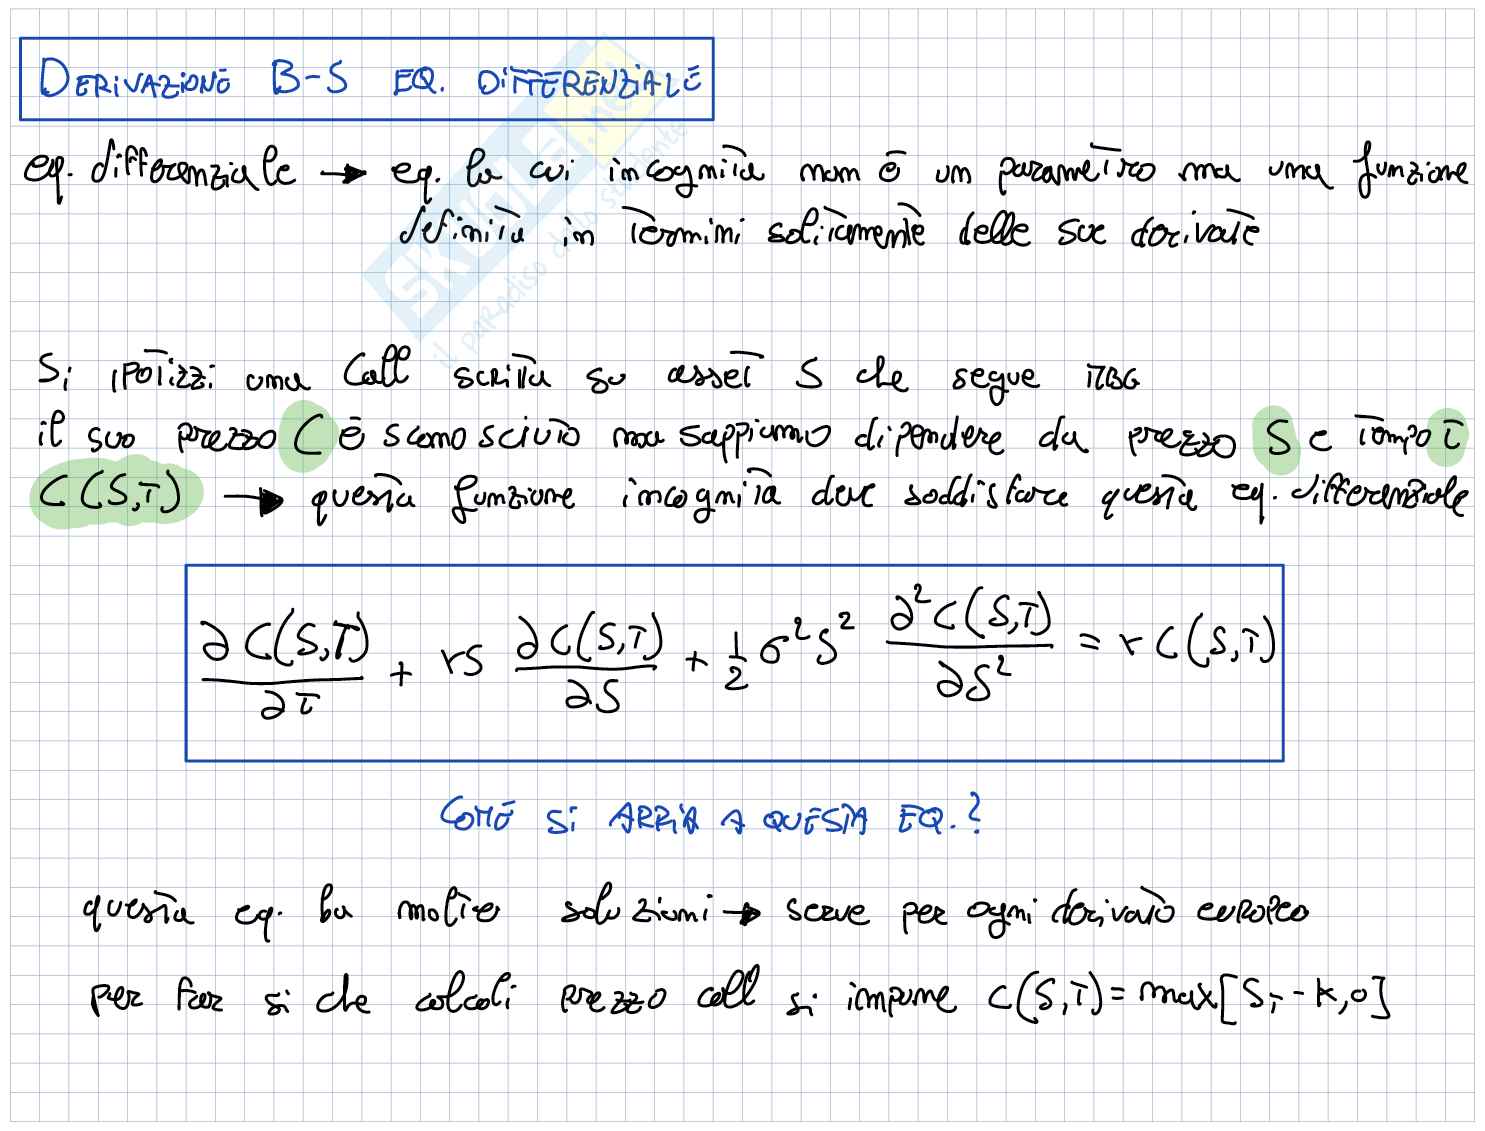 DERIVAZIONE B-S EQ. DIFFERENZIALE
eq. differenziale → eq. la cui incognita non è un parametro ma una funzione
definita in termini solitamente delle sue derivate
Si ipotizzi una Call scritta su asset S che segue MBG
il suo prezzo C è sconosciuto ma sappiamo dipendere da prezzo S e tempo t
C(S,T) → questa funzione incognita deve soddisfare questa eq. differenziale
∂C(S,T)/∂T + rS ∂C(S,T)/∂S + 1/2 σ²S² ∂²C(S,T)/∂S² = rC(S,T)
COME SI ARRIVA A QUESTA EQ.?
questa eq. ha molte soluzioni → serve per ogni derivato europeo
per far si che calcoli prezzo call si impone C(S,T) = max[S_T - K, 0]
SKUOLA.net
il paradiso dello studente